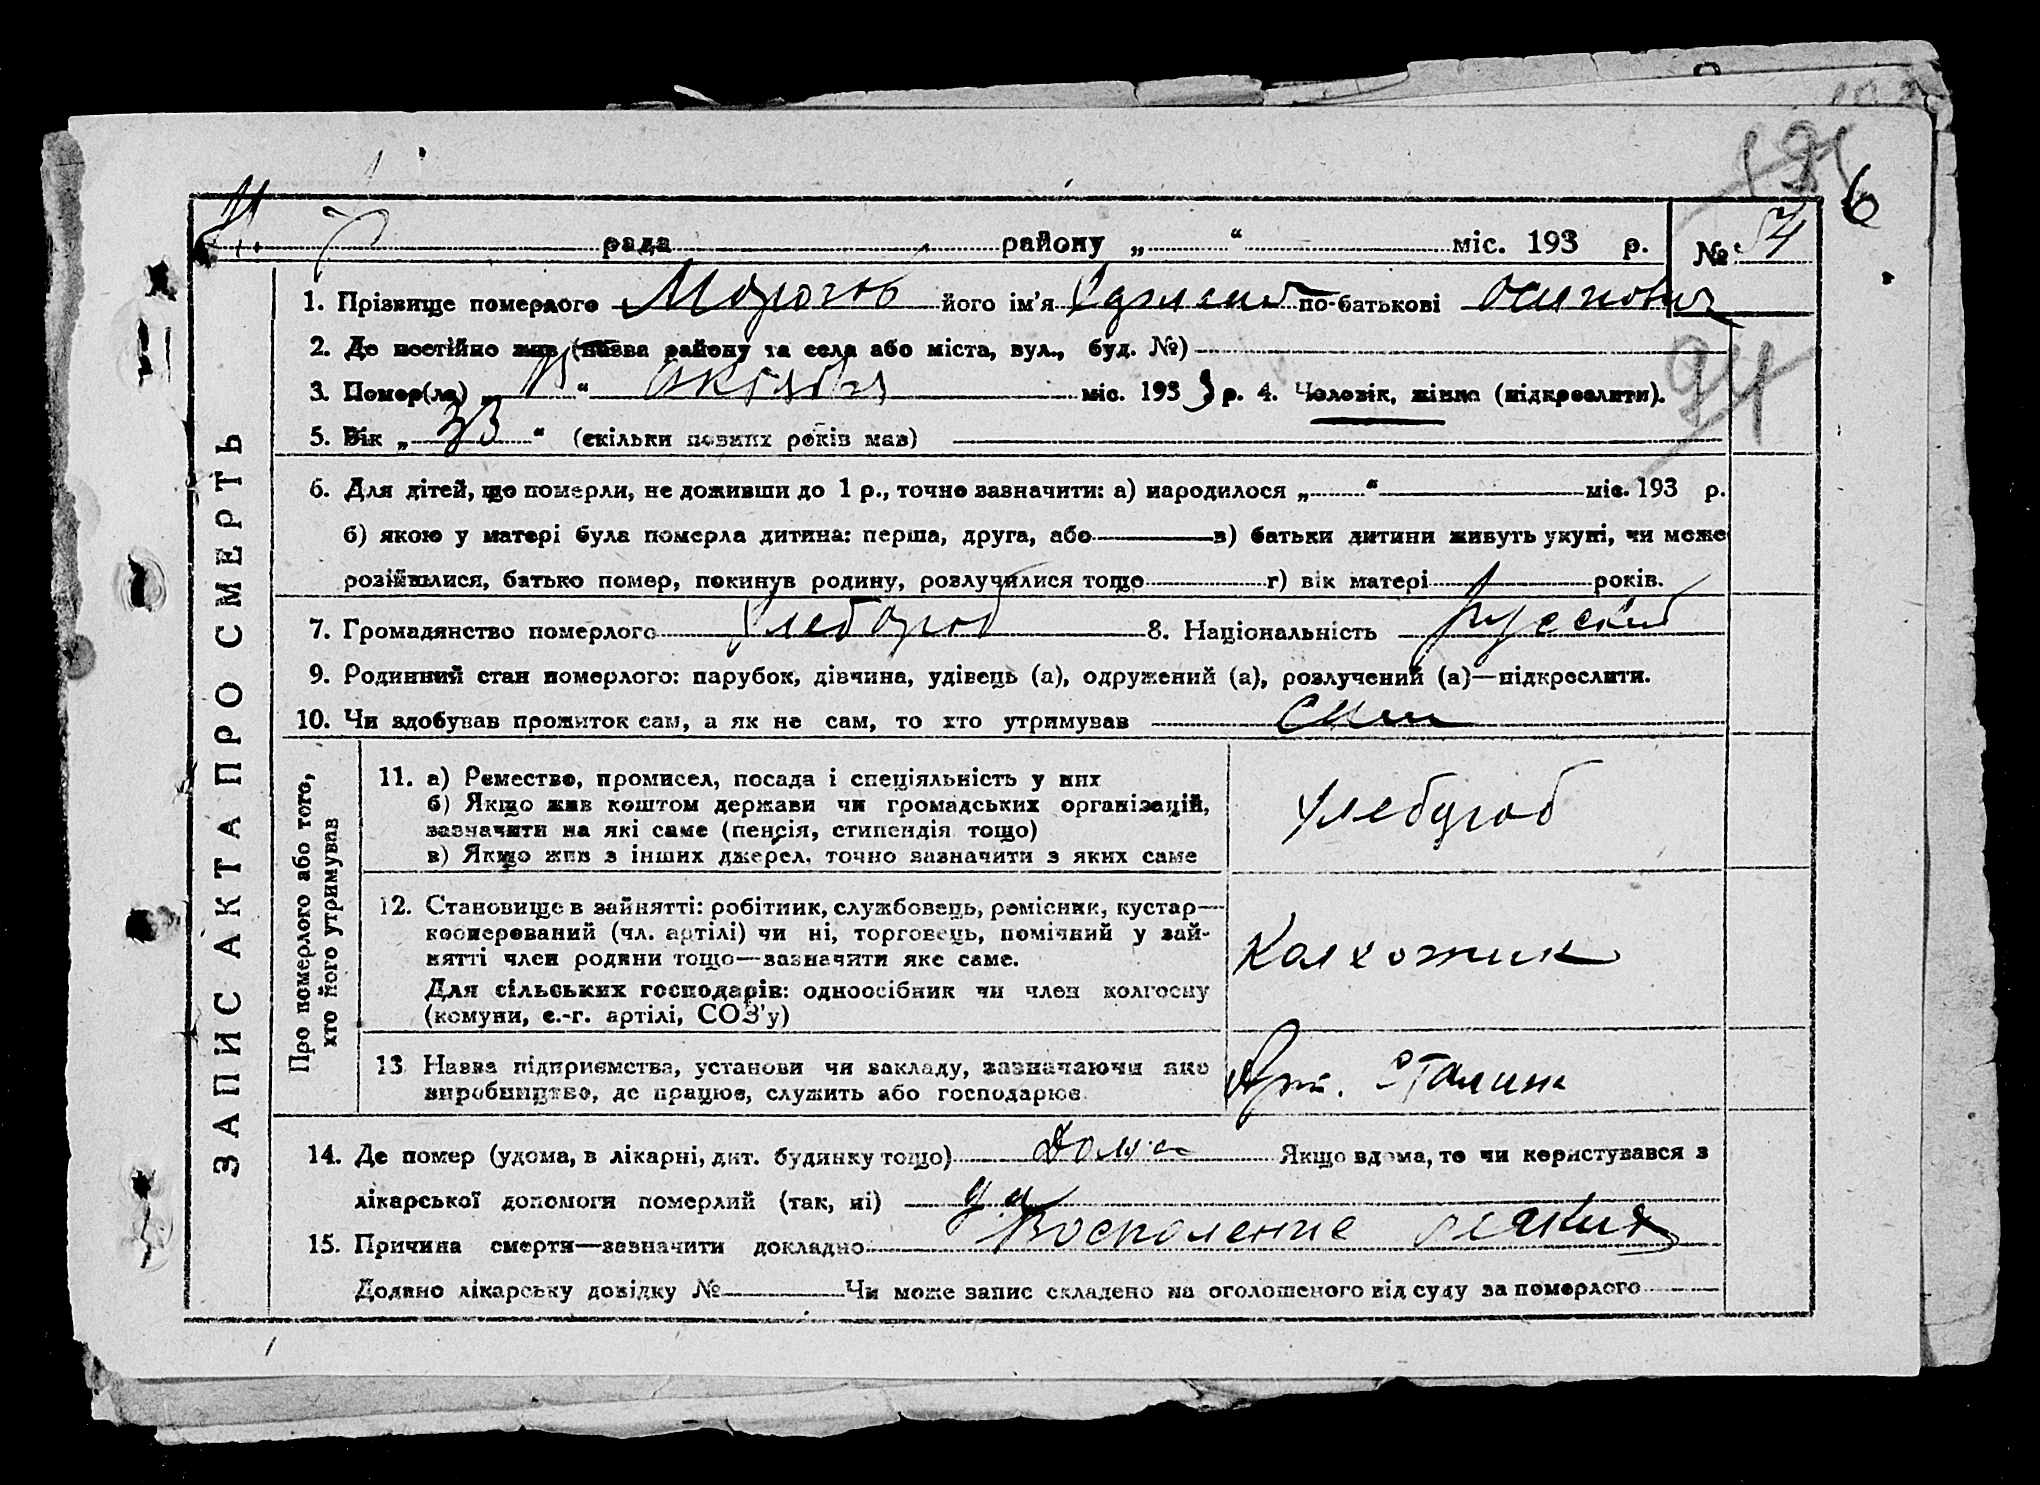 6
рада району „ “ міс. 193 р. № 54
1. Прізвище померлого Морогов його ім'я по-батькові Осипович
2. Де постійно жив (назва району та села або міста, вул., буд. №)
94
3. Помер(ла) „ “ октября міс. 193 3 р. 4. Чоловік, жінка (підкреслити).
5. Вік „ 33 “ (скільки повних років мав)
6. Для дітей, що померли, не доживши до 1 р., точно зазначити: а) народилося „ “ міс. 193 р.
б) якою у матері була померла дитина: перша, друга, або в) батьки дитини живуть укупі, чи може
розійшлися, батько помер, покинув родину, розлучилися тощо г) вік матері років.
7. Громадянство померлого хлебороб 8. Національність русский
9. Родинний стан померлого: парубок, дівчина, удівець (а), одружений (а), розлучений (а)—підкреслити.
10. Чи здобував прожиток сам, а як не сам, то хто утримував сам
ЗАПИС АКТА ПРО СМЕРТЬ
Про померлого або того,
хто його утримував
11. а) Ремество, промисел, посада і спеціяльність у них
б) Якщо жив коштом держави чи громадських організацій,
зазначити на які саме (пенсія, стипендія тощо)
в) Якщо жив з інших джерел, точно зазначити з яких саме
хлебороб
12. Становище в зайнятті: робітник, службовець, ремісник, кустар—
кооперований (чл. артілі) чи ні, торговець, помічний у зай-
нятті член родини тощо—зазначити яке саме.
Для сільських господарів: одноосібник чи член колгоспу
(комуни, с.-г. артілі, СОЗ'у)
Колхозник
13 Назва підприємства, установи чи закладу, зазначаючи яке
виробництво, де працює, служить або господарює
Арт. Сталин
14. Де помер (удома, в лікарні, дит. будинку тощо) Дома Якщо вдома, то чи користувався з
лікарської допомоги померлий (так, ні)
15. Причина смерти—зазначити докладно Воспаление
Додано лікарську довідку № Чи може запис складено на оголошеного від суду за померлого